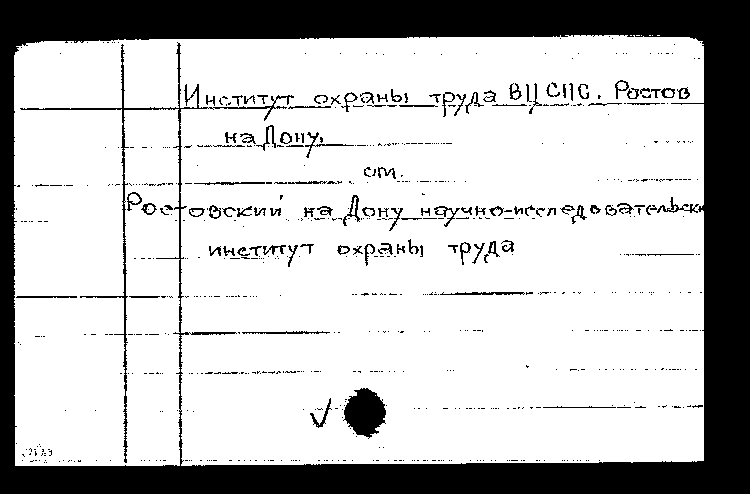 Институт охраны труда ВЦСПС. Ростов
на Дону.
см.
Ростовский на Дону научно-исследовательски
институт охраны труда